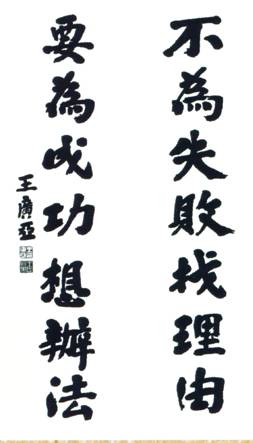 不為失敗找理由
要為成功想辦法
王廣亞